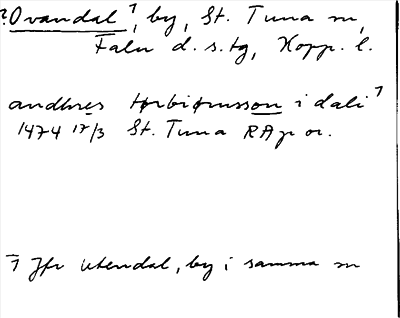 ?Ovandal ⁊, by, St. Tuna sn,
Falu d. s. tg, Kopp. l.
andhres thorbiørnsson i dali ⁊
1474 17/3 St. Tuna RAp or.
⁊ Jfr Utendal, by i samma sn